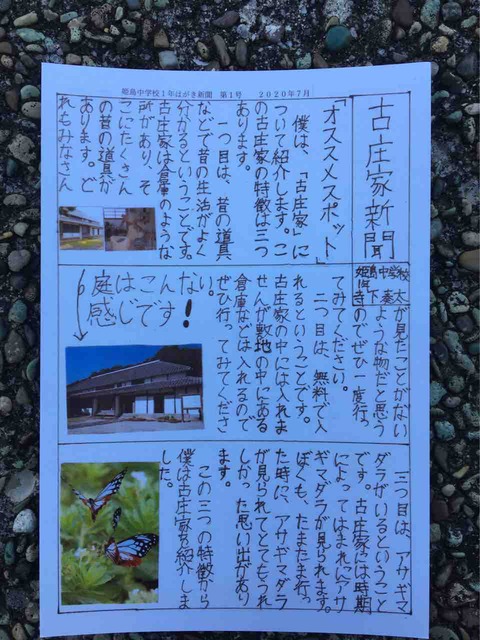 姫島中学校1年はがき新聞 第1号 2020年7月
古庄家新聞
姫島中学校
1年
「オススメスポット」
僕は、「古庄家」に
ついて紹介します。こ
の古庄家の特徴は三つ
あります。
一つ目は、昔の道具
などで昔の生活がよく
分かるということです。
古庄家は倉庫のような
所があり、そ
こにたくさん
の昔の道具が
あります。ど
れもみなさん
が見たことがない
ような物だと思う
のでぜひ一度行っ
てみてください。
二つ目は、無料で入
れるということです。
古庄家の中には入れま
せんが敷地の中にある
倉庫などは入れるので
ぜひ行ってみてくださ
い。
庭はこんな
感じです!
三つ目は、アサギマ
ダラがいるということ
です。古庄家には時期
によってはまれにアサ
ギマダラが見られます。
ぼくも、たまたま行っ
た時に、アサギマダラ
が見られてとてもうれ
しかった思い出があり
ます。
この三つの特徴から
僕は古庄家を紹介しま
した。